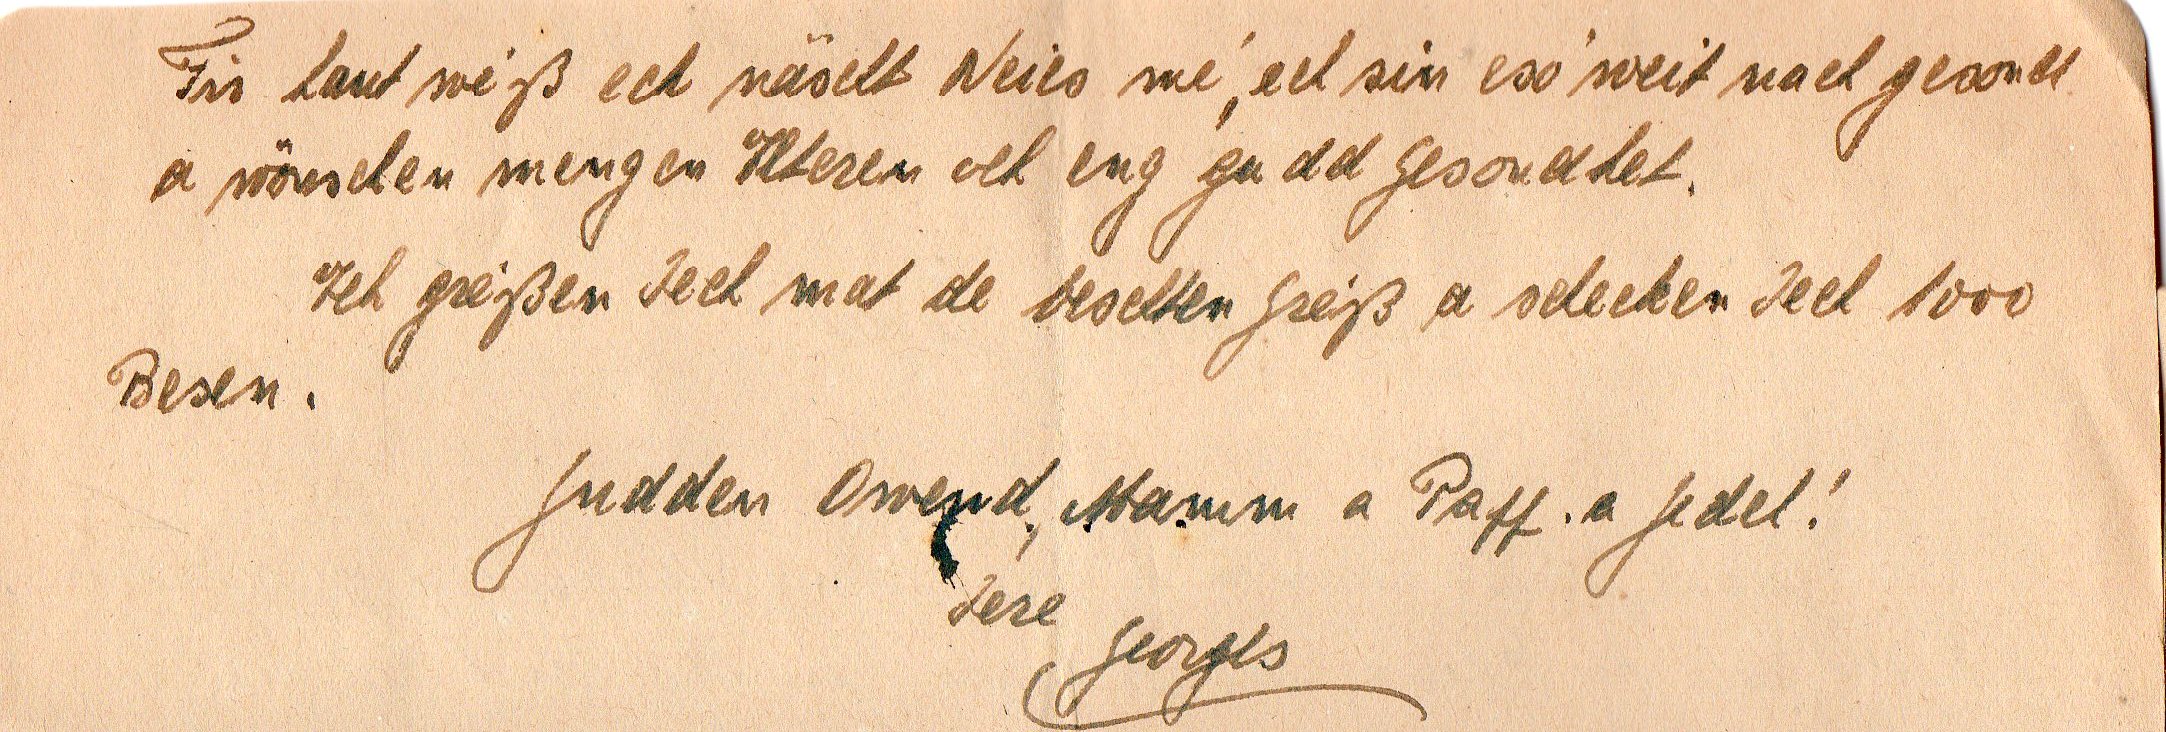 Fir haut wéß ech näscht Neies mé, ech sin esó weit nach gesond
a wönschen mengen Ilteren och eng gudd Gesondhet.
Ich gréßen Iech mat de beschten Gréiß a schecken Iech 1000
Besen.
Gudden Owend, Mamm a Paff. a Jedel!
Iere
Georges